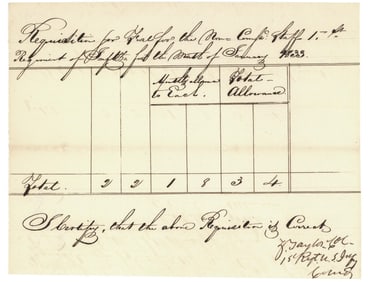 Requisition for Fuel for the Non Comd Staff 1st
Regiment of Infty for the Month of January 1833.
Monthly allowance Total
to Each. Allowance
Total. 2 2 1 8 3 4
I Certify, that the above Requisition is Correct
Z. Taylor Col.
1st Regt U.S. Infy
Comdg